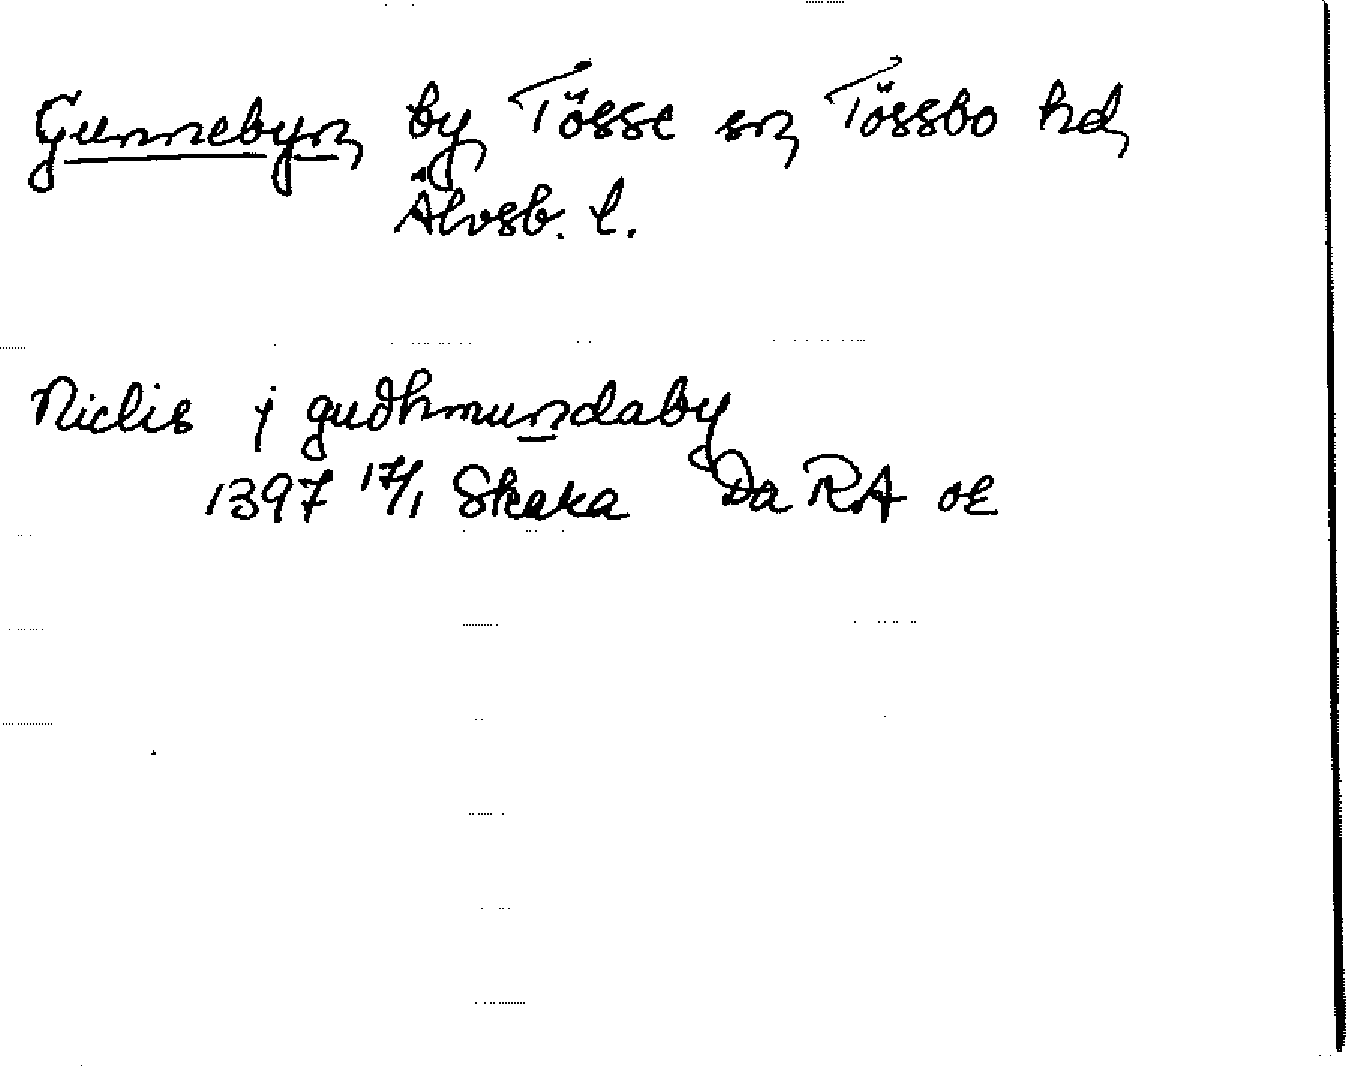 Gunnebyn by Tösse sn Tössbo hd
Älvsb. l.
Niclis j gudhmundaby
1397 17/1 Skaka Da RA OE